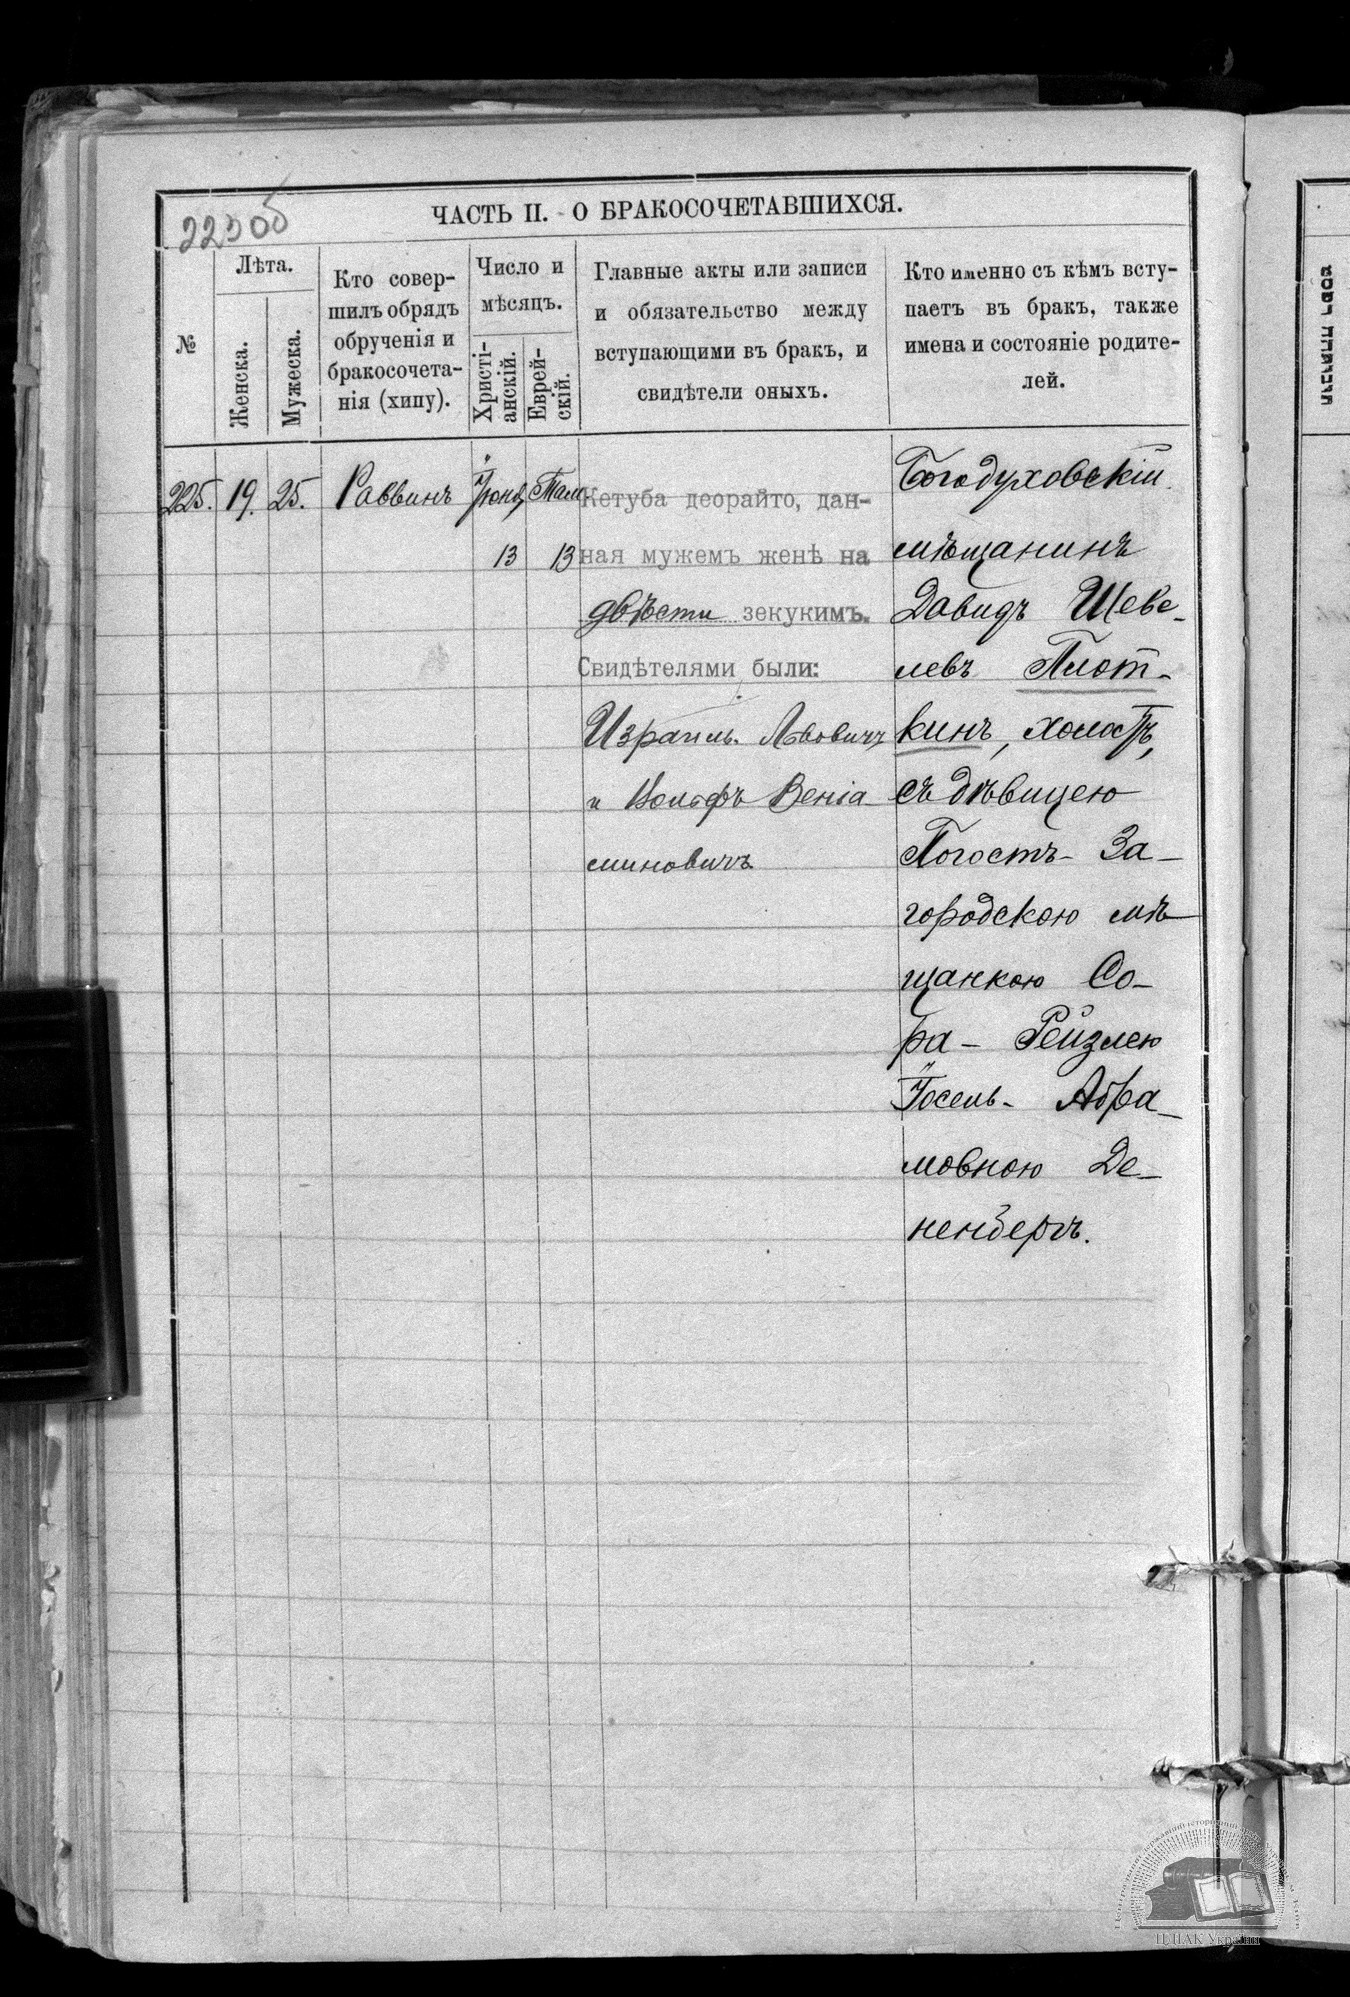 2230б
ЧАСТЬ II. - О БРАКОСОЧЕТАВШИХСЯ.
№
Лѣта.
Женска.
Мужеска.
Кто совер-
шилъ обрядъ
обрученія и
бракосочета-
нія (хипу).
Число и
мѣсяцъ.
Христі-
анскій.
Еврей-
скій.
Главные акты или записи
и обязательство между
вступающими въ бракъ, и
свидѣтели оныхъ.
Кто именно съ кѣмъ всту-
паетъ въ бракъ, также
имена и состояніе родите-
лей.
225. 19. 25. Раввинъ
Іюнь 13
Там 13
Кетуба деорайто, дан-
ная мужемъ женѣ на
двѣсти зекукимъ.
Свидѣтелями были:
Израиль Львовичъ
и Вольфъ Веніа
миновичъ
Богодуховскій
мѣщанинъ
Давидъ Шеве-
левъ Плот-
кинъ, холостъ,
съ дѣвицею
Погостъ-За-
городскою мѣ-
щанкою Со-
ра-Рейзлею
Іосель-Абра-
мовною Де-
ненбергъ.
ЦДІАК України